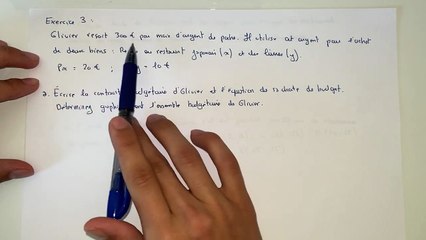 Exercice 3 :
Olivier reçoit 300 € par mois d'argent de poche. Il utilise cet argent pour l'achat
de deux biens : au restaurant japonais (x) et des livres (y).
Px = 20 € ; y = 10 €
Écrire la contrainte budgétaire d'Olivier et l'équation de sa droite de budget.
Déterminez l'ensemble budgétaire de Olivier.